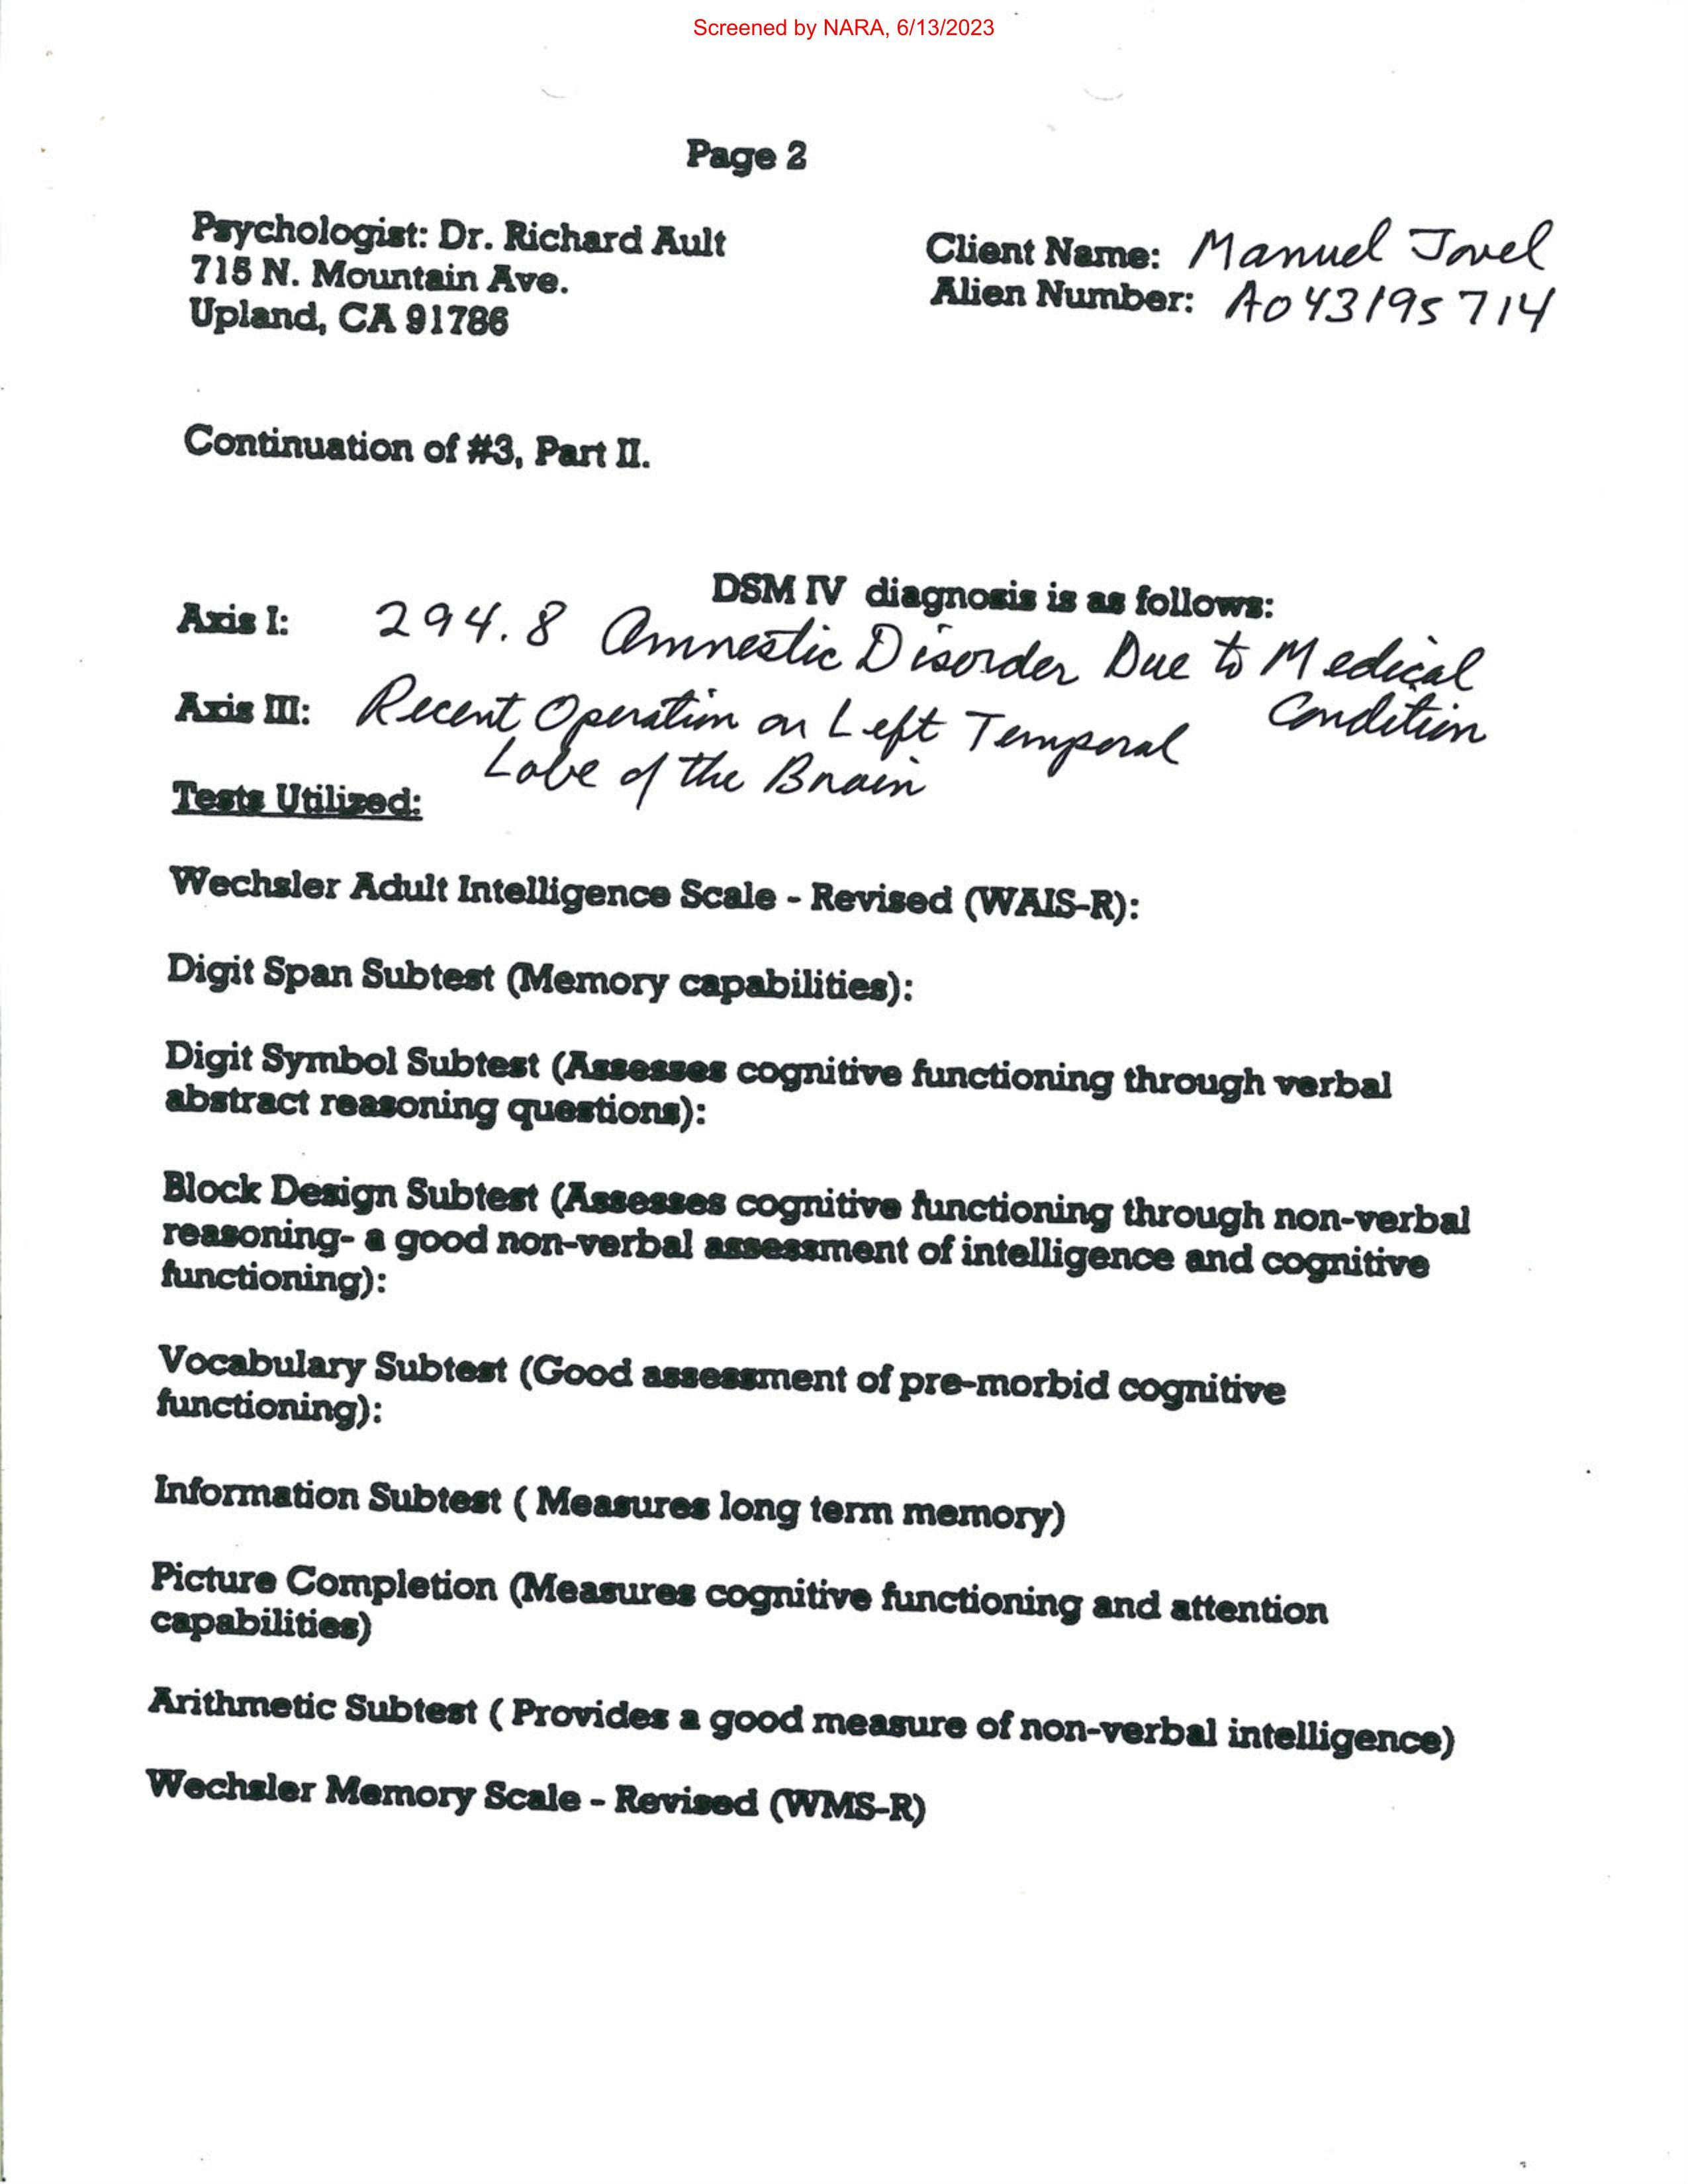 Screened by NARA, 6/13/2023
Page 2
Psychologist: Dr. Richard Ault
715 N. Mountain Ave.
Upland, CA 91786
Client Name: Manuel Jovel
Alien Number: A043195714
Continuation of #3, Part II.
DSM IV diagnosis is as follows:
Axis I: 294.8 Amnestic Disorder Due to Medical
Condition
Axis III: Recent Operation on Left Temporal
Lobe of the Brain
Tests Utilized:
Wechsler Adult Intelligence Scale - Revised (WAIS-R):
Digit Span Subtest (Memory capabilities):
Digit Symbol Subtest (Assesses cognitive functioning through verbal
abstract reasoning questions):
Block Design Subtest (Assesses cognitive functioning through non-verbal
reasoning- a good non-verbal assessment of intelligence and cognitive
functioning):
Vocabulary Subtest (Good assessment of pre-morbid cognitive
functioning):
Information Subtest ( Measures long term memory)
Picture Completion (Measures cognitive functioning and attention
capabilities)
Arithmetic Subtest ( Provides a good measure of non-verbal intelligence)
Wechsler Memory Scale - Revised (WMS-R)